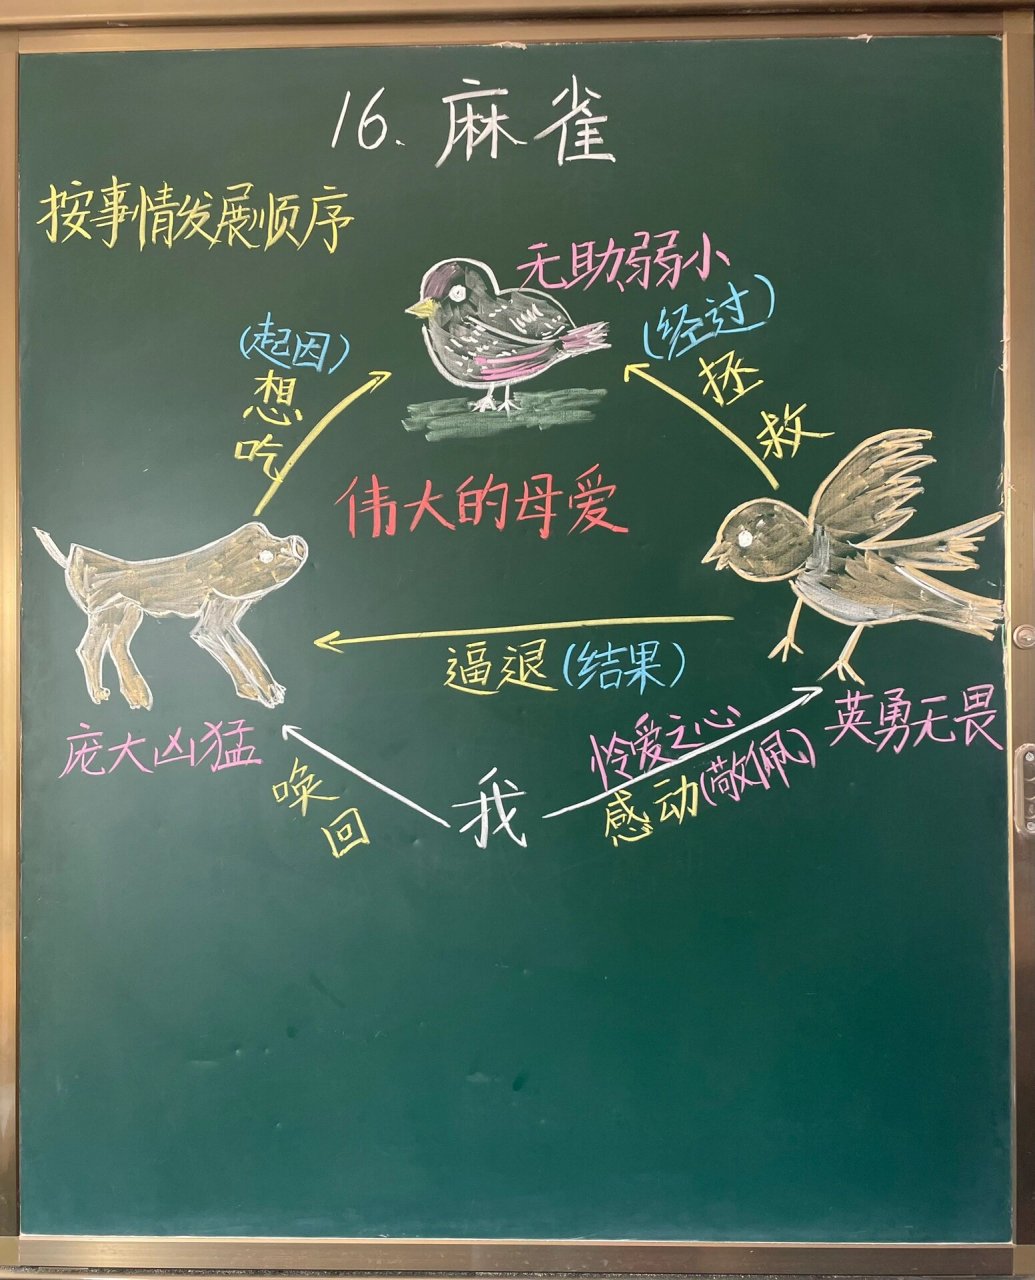 16.麻雀
按事情发展顺序
无助、弱小
(起因)
想吃
(经过)
拯救
伟大的母爱
逼退(结果)
庞大凶猛
英勇无畏
唤回
我
怜爱之心
感动(敬佩)